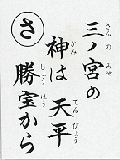 さん の みや
三ノ宮の
かみ てんぴょう
神は 天平
しょう ほう
勝宝から
さ